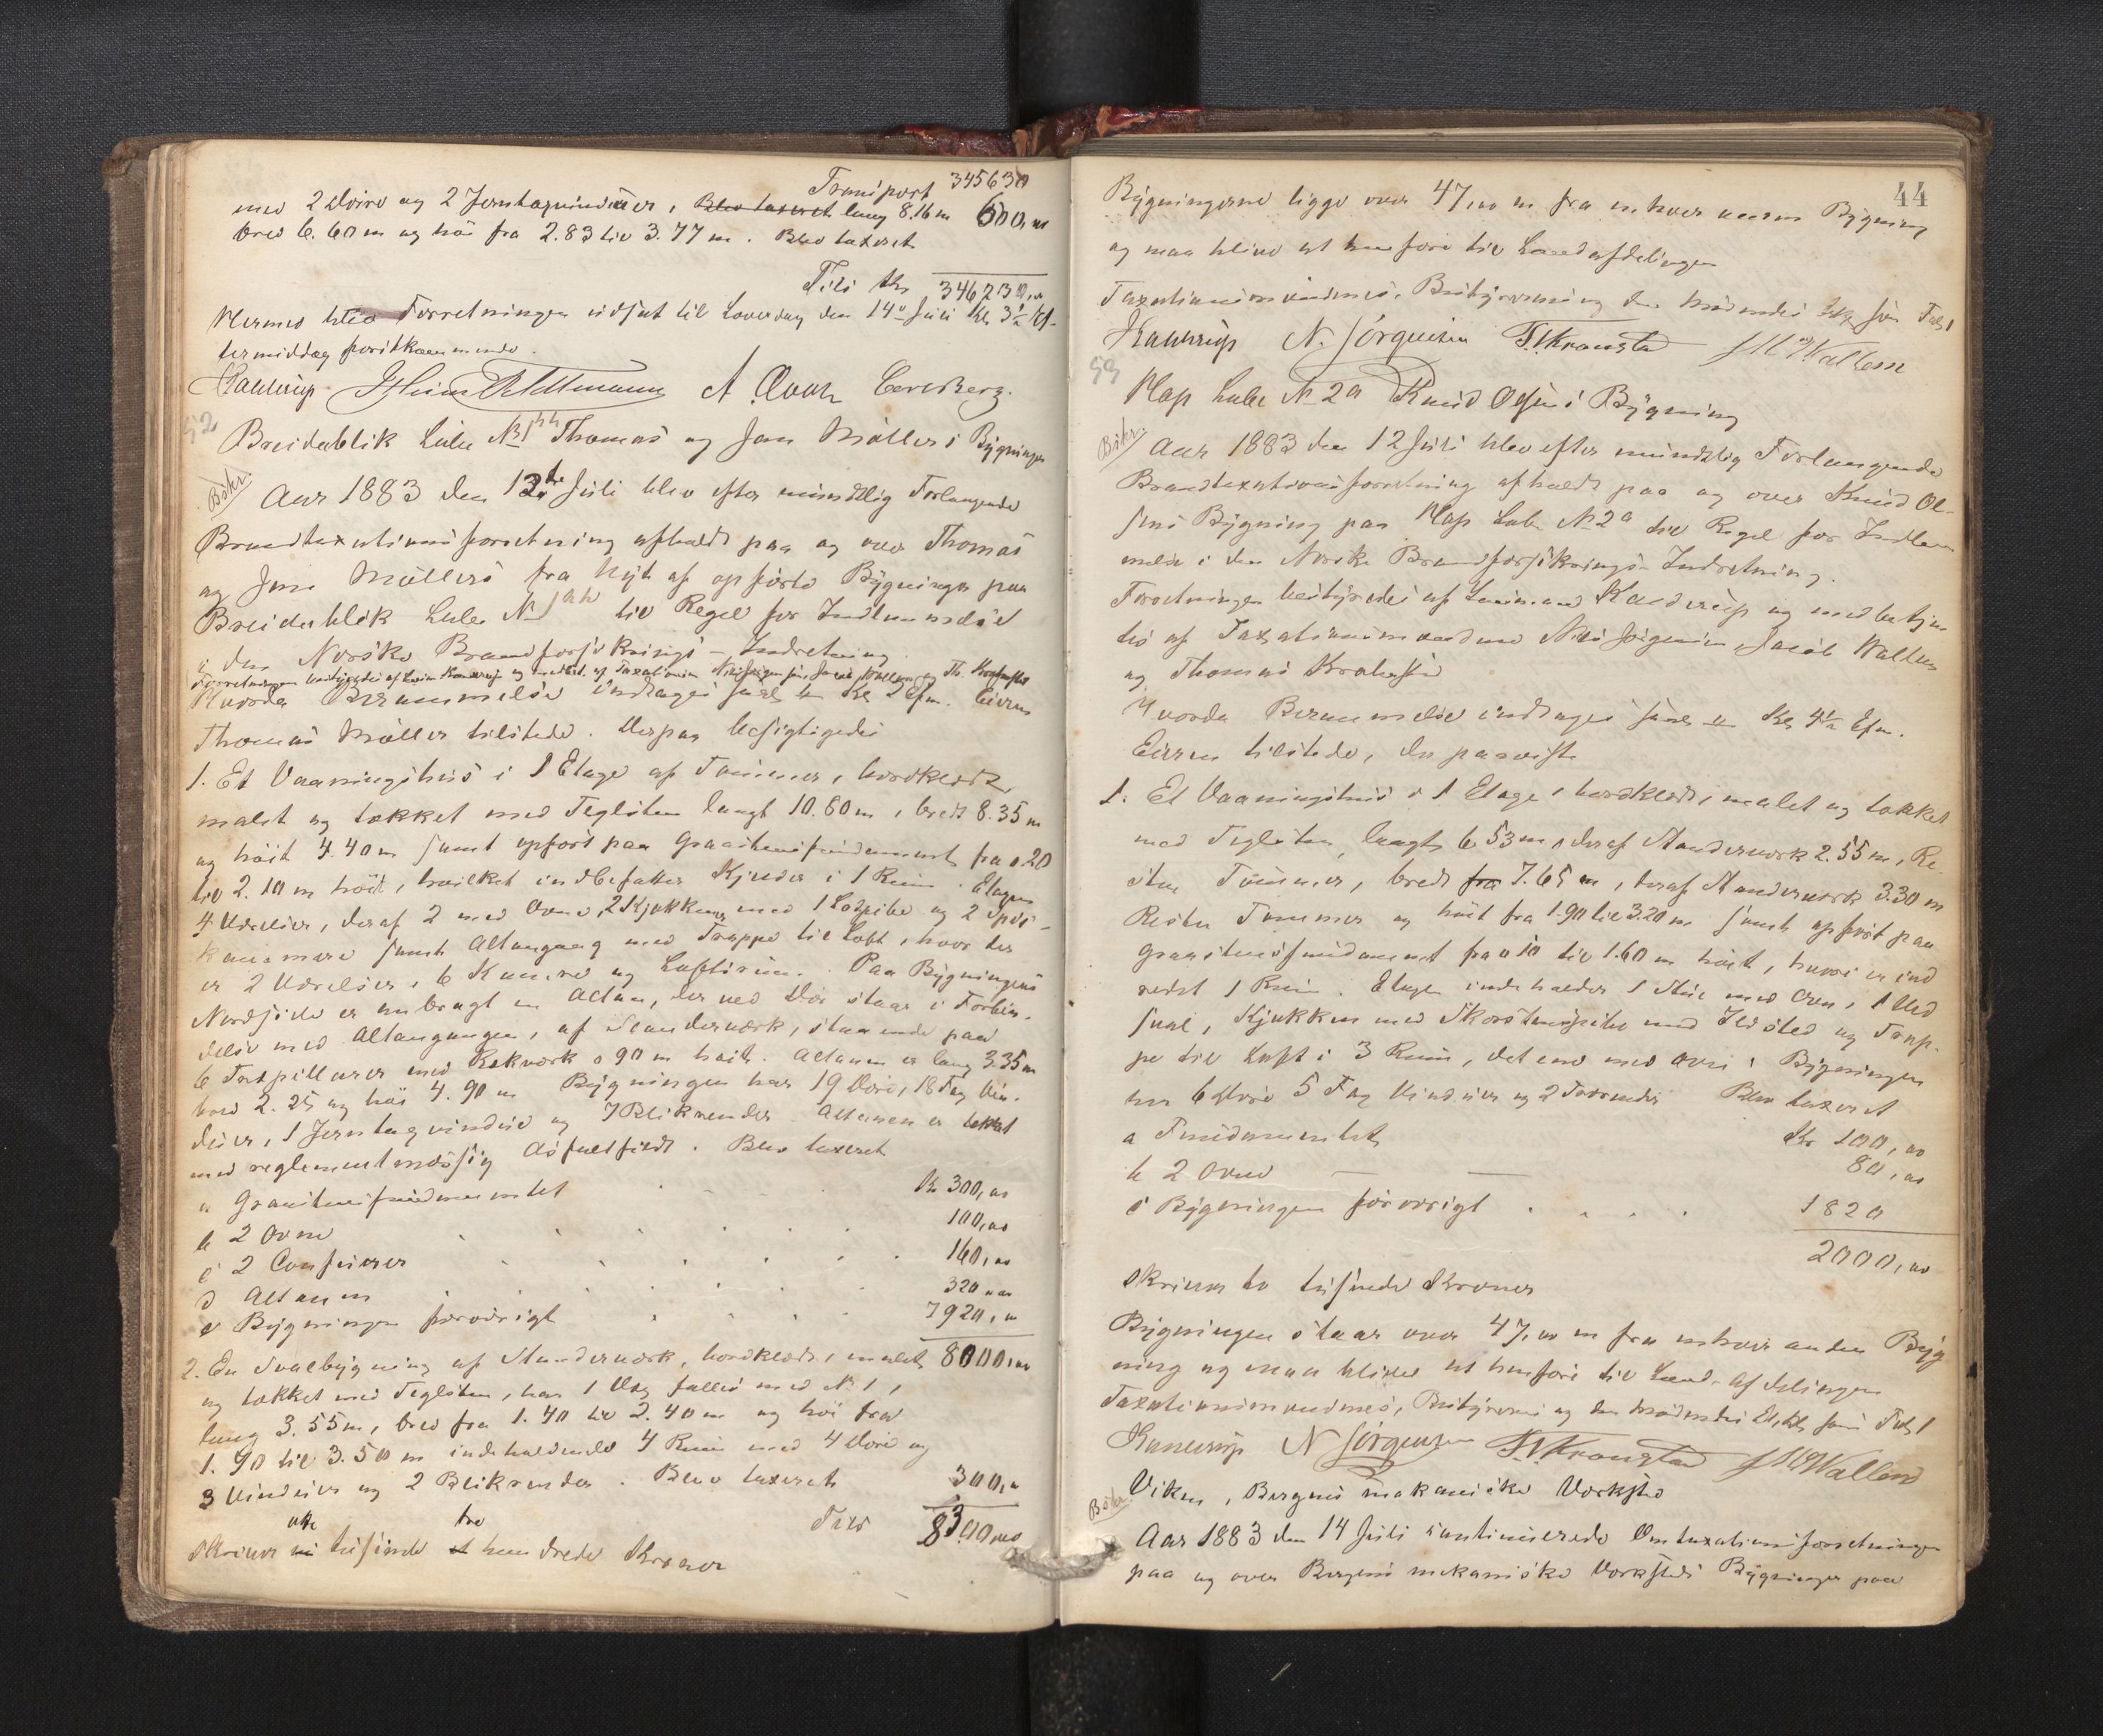 Transport 345630
med 2 Döre og 2 Jerntagvinduer, Blev taxeret lang 8.16 m 600,00
bred 6.60 m og höi fra 2.83 til 3.77 m. Blev taxeret
Tils Kr 346230,00
Dermed blev Forretningen udsat til Löverdag den 14de Juli Kl 3½ Ef-
termiddag förstkommende.
Kahrs A. Coar Carl Berg.
52
Breidablik Lübe No 1 Thomas og Jens Möllers Bygninger
Bskr.
Aar 1883 den 12te Juli blev efter mundtlig Forlangende
Brandtaxationsforretning afholdt paa og over Thomas
og Jens Möllers fra Nyt af opförte Bygninger paa
Breidablik Lube No 1 til Regel for Indlemmelse
i den Norske Brandforsikrings-Indretning.
Forretningen bestyredes af og medbet. af Taxationsm Nils Jörgensen, Jacob Wallem og Th. Kronstad
Hvorda Berammelse indtoges saal Kl 2 Efm. Eieren
Thomas Möller tilstede. Derpaa besigtigedes
1. Et Vaaningshus i 1 Etage af Tömmer, bordklædt,
malet og tækket med Teglsten langt 10.60 m, bredt 8.35 m
og höit 4.40 m samt opfört paa Graastensfundament fra 0.20
til 2.10 m höit, hvilket indbefatter Kjelder i 1 Rum. Etagen
4 Værelser, deraf 2 med Ovne, 2 Kjökkener med 1 Lodpibe og 2 Spis-
kammere samt Altangang med Trappe til Loft, hvor der
er 2 Værelser, 6 Kamre og Loftsrum. Paa Bygningens
Nordside er anbragt en Altan, der ved Dör staar i Forbin-
delse med Altangangen, af Standerværk, staaende paa
6 Træpillarer med Rekværk 0.90 m höit. Altanen er lang 3.35 m
bred 2.25 og höi 4.90 m Bygningen har 19 Döre, 18 Fag Vin-
duer, 1 Jerntagvindue og 7 Blikrender. Altanen er tækket
med reglementmæssig Asfaltfilt. Blev taxeret
a Graastensfundamentet Kr 300,00
b 2 Ovne 100,00
c 2 Comfurer 160,00
d Altanen 320,00
e Bygningen forövrigt 7920,00
2. En Svalbygning af Standerværk, bordklædt, malet 8000,00
og tækket med Teglsten, har 1 Væg fælles med No 1,
lang 3.55 m, bred fra 1.40 til 2.40 m og höi fra
1.90 til 3.50 m indeholdende 4 Rum med 4 Döre og
3 Vinduer og 2 Blikrender. Blev taxeret 300,00
Tils 8300,00
otte tre
skriver ni tusinde et hundrede Kroner
44
Bygningerne ligge over 47,00 m fra enhver anden Bygning
og maa blive at henföre til Landafdelingen
Taxationsmændenes, Bestyrerens og den mödendes som Fol 1
N. Jörgensen T. Kronstad J M Wallem
53
Hop Lube No 2a Knud Olsens Bygning
Bskr.
Aar 1883 den 12 Juli blev efter mundtlig Forlangende
Brandtaxationsforretning afholdt paa og over Knud Ol-
sens Bygning paa Hop Lube No 2a til Regel for Indlem-
melse i den Norske Brandforsikrings-Indretning.
Forretningen bestyredes af Lensmand og medbetjen-
tes af Taxationsmændene Nils Jörgensen, Jacob Wallem
og Thomas Kronstad
Hvorda Berammelse indtoges saal Kl 4½ Efm.
Eieren tilstede, der paaviste
1. Et Vaaningshus i 1 Etage, bordklædt, malet og tækket
med Teglsten, langt 6.53 m, deraf Standerværk 2.55 m, Re-
sten Tömmer, bredt fra 7.65 m, deraf Standerværk 3.30 m
Resten Tömmer og höit fra 1.90 til 3.20 m samt opfört paa
Graastensfundament fra 0.10 til 1.60 m höit, hvori er ind
redet 1 Rum. Etagen indeholder 1 Stue med Ovn, 1 Ved
sval, Kjökken med Skorstenspibe med Ildsted og Trap-
pe til Loft i 3 Rum, det ene med Ovn. Bygningen
har 6 Döre 5 Fag Vinduer og 2 Trærender Blev taxeret
a Fundamentet Kr 100,00
b 2 Ovne 80,00
c Bygningen forövrigt 1820
2000,00
skriver to tusinde Kroner
Bygningen staar over 47,00 m fra enhver anden Byg
ning og maa blive at henföre til Land-afdelingen
Taxationsmændenes, Bestyrerens og den mödendes som Fol 1
N Jörgensen T. Kronstad J M Wallem
Bskr.
Viken, Bergens mekaniske Værksted
Aar 1883 den 14 Juli continuerede Omtaxationsforretningen
paa og over Bergens mekaniske Værksteds Bygninger paa